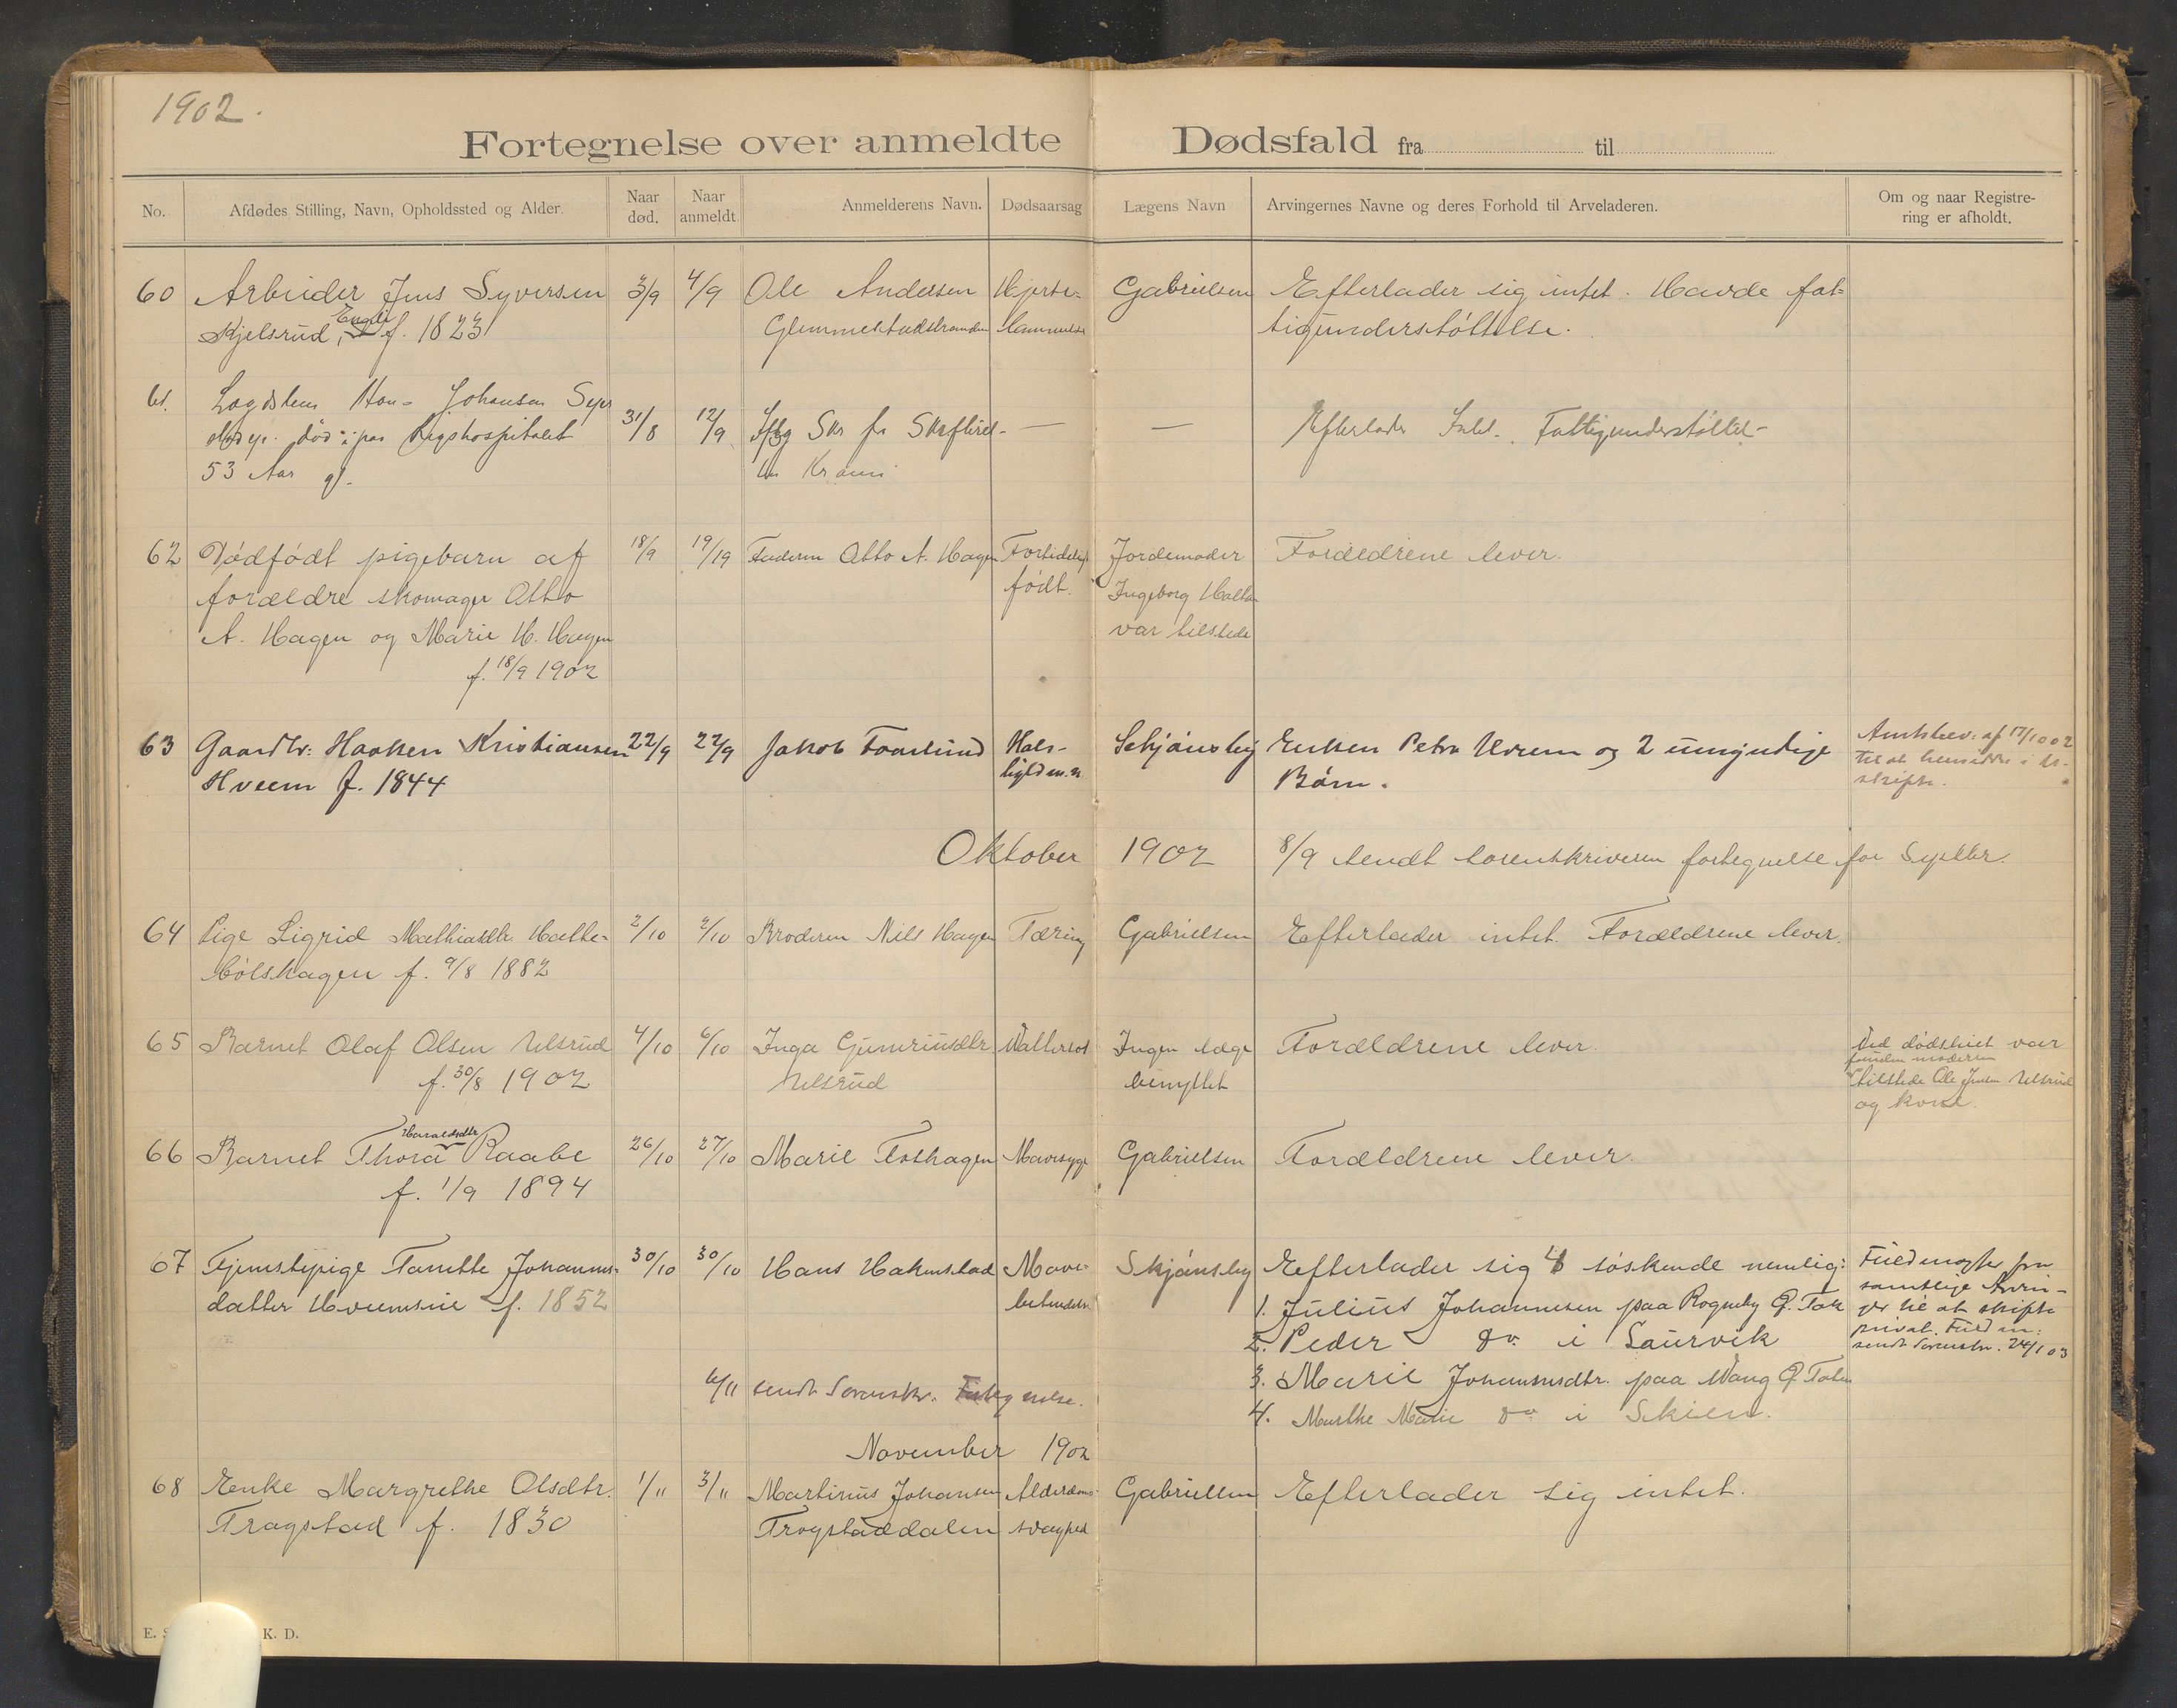 1902.
Fortegnelse over anmeldte Dødsfald fra til
No.
Afdødes Stilling, Navn, Opholdssted og Alder.
Naar død.
Naar anmeldt.
Anmelderens Navn.
Dødsaarsag
Lægens Navn
Arvingernes Navne og deres Forhold til Arveladeren.
Om og naar Registre-
ring er afholdt.
60 Arbeider Jens Syversen 3/9 4/9 Ole Andersen Hjerte- Gabrielsen Efterlader sig intet. Havde fat-
Kjelsrud, Enge f. 1823 Glemmestadstranden lammelse tigunderstøttelse.
61. Lægdslem Johansen 31/8 12/9 — — Efterlader Intet. Fattigunderstøttet
død i paa Rigshospitalet
53 Aar gl.
62 Dødfødt pigebarn af 18/9 19/19 Faderen Otto A. Hagen Fortidelig Jordemoder Forældrene lever.
forældre skomager Otto født. Ingeborg
A. Hagen og Marie H. Hagen var tilstede
f. 18/9 1902
63 Gaardbr: Haaken Kristiansen 22/9 22/9 Jakob Faarlund Hals- Schjånsby Enken Petra Hveem og 2 umyndige
Hveem f. 1844 Børn.
Amtsbev: af 17/10 02
til at hensidde i u-
skifte.
Oktober 1902 8/9 sendt sorenskriveren fortegnelse for Septbr.
64 Pige Sigrid Mathiasdtr. 2/10 2/10 Broderen Nils Hagen Tæring Gabrielsen Efterlader intet. Forældrene lever.
f. 9/8 1882
65 Barnet Olaf Olsen Ulsrud 4/10 6/10 Inga Guneriusdtr. Ingen læge Forældrene lever.
f. 30/8 1902 Ulsrud benyttet
Ved dødsleiet var
foruden moderen
tilstede Ole Jensen Ulsrud
og kone.
66 Barnet Thora Haraldsdtr. Raabe 26/10 27/10 Marie Foshagen Mavesyge Gabrielsen Forældrene lever.
f. 1/9 1894
67 Tjenstepige Johannes- 30/10 30/10 Hans Hakenstad Mave- Skjånsby Efterlader sig 4 søskende nemlig:
datter f. 1852 betændelse 1. Julius Johannesen paa Rogneby Ø. Tot
2. Peder Do i Saurvik
3. Marie Johannesdtr. paa Vang Ø. Toten
4. Marthe Marie Do i Skien.
Fuldmagter fra
samtlige Arvin-
ger til at skifte
privat. Fuldm:
sendt Sorenskr. 24/1 03
6/11 sendt Sorenskr. Fortegnelse.
November 1902
68 Enke Margrethe Olsdtr. 1/11 3/11 Martinius Johansen Alderdoms- Gabrielsen Efterlader sig intet.
Trogstad f. 1830 Trogstaddalen svaghed
E. S K. D.